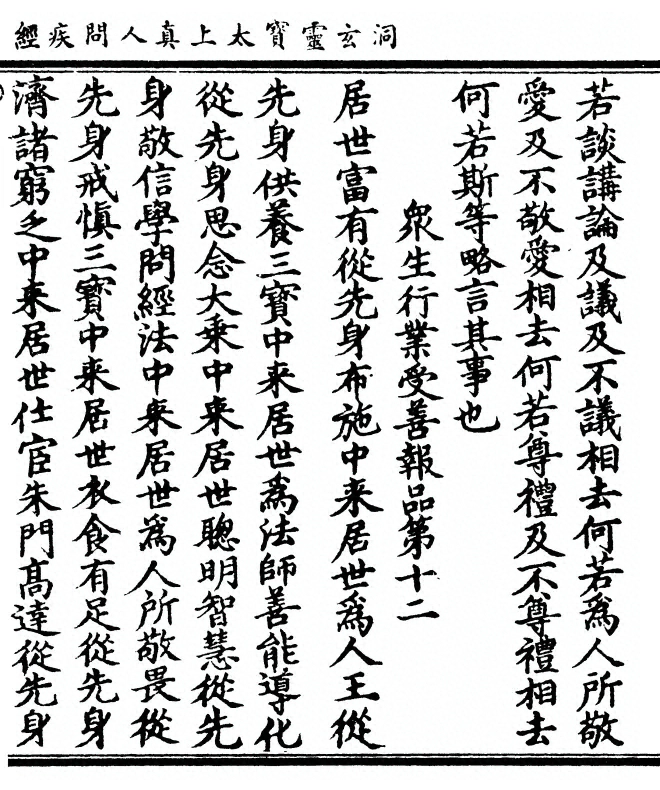 洞玄靈寶太上真人問疾經
若談講論及議及不議相去何若為人所敬
愛及不敬愛相去何若尊禮及不尊禮相去
何若斯等略言其事也
衆生行業受善報品第十二
居世富有從先身布施中来居世為人王從
先身供養三寶中来居世為法師善能導化
從先身思念大乘中来居世聰明智慧從先
身敬信學問經法中来居世為人所敬畏從
先身戒慎三寶中来居世衣食有足從先身
濟諸窮乏中来居世仕宦朱門高達從先身